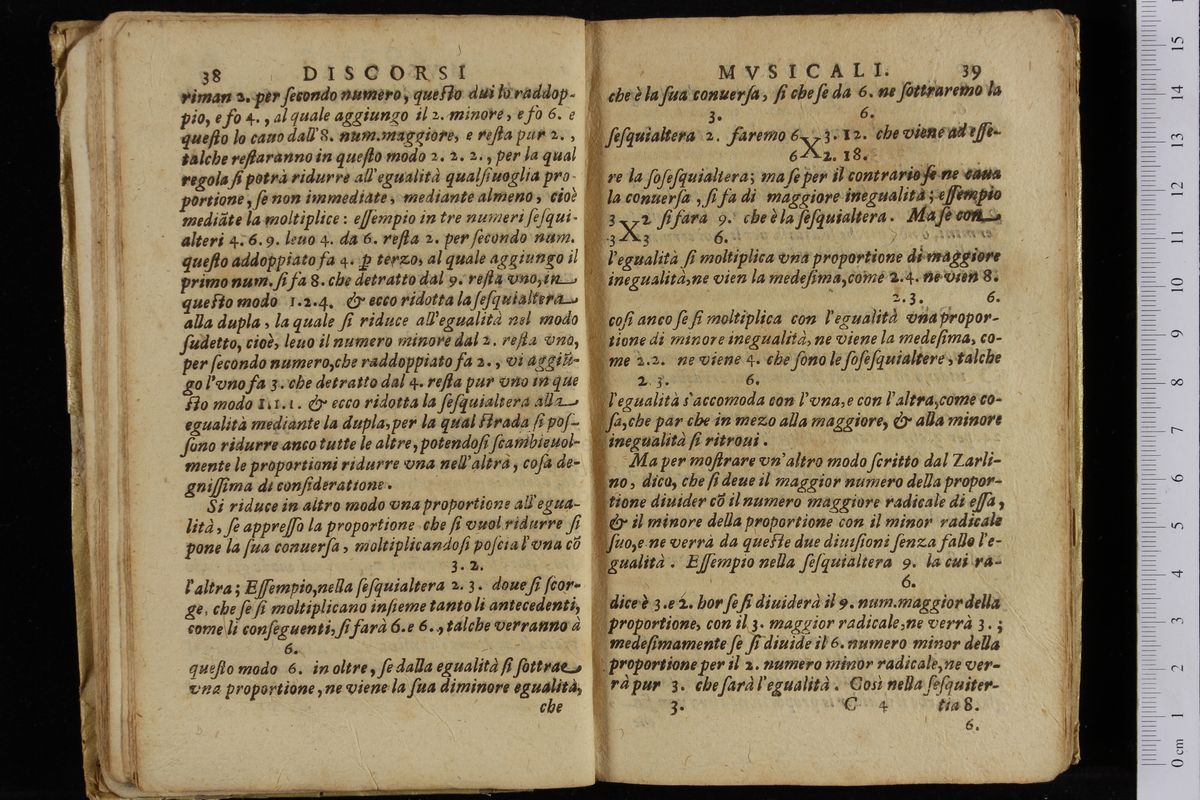 38 DISCORSI
riman 2. per ſecondo numero, queſto dui lo raddop-
pio, e fo 4., al quale aggiungo il 2. minore, e fò 6. e
queſto lo cauo dall'8. num.maggiore, e reſta pur 2.,
talche reſtaranno in queſto modo 2. 2. 2., per la qual
regola ſi potrà ridurre all'egualità qualſiuoglia pro-
portione, ſe non immediate, mediante almeno, cioè
mediāte la moltiplice : eſſempio in tre numeri ſeſqui-
alteri 4. 6. 9. leuo 4. da 6. reſta 2. per ſecondo num.
queſto addoppiato fa 4. ꝑ terzo, al quale aggiungo il
primo num. ſi fa 8. che detratto dal 9. reſta vno, in
queſto modo 1.2.4. & ecco ridotta la ſeſquialtera
alla dupla, la quale ſi riduce all'egualità nel modo
ſudetto, cioè, leuo il numero minore dal 2. reſta vno,
per ſecondo numero,che raddoppiato fa 2., vi aggiū-
go l'vno fa 3. che detratto dal 4. reſta pur vno in que
ſto modo 1.1.1. & ecco ridotta la ſeſquialtera alla
egualità mediante la dupla,per la qual ſtrada ſi poſ-
ſono ridurre anco tutte le altre,potendoſi ſcambieuol-
mente le proportioni ridurre vna nell'altra, coſa de-
gniſſima di conſideratione.
Si riduce in altro modo vna proportione all'egua-
lità, ſe appreſſo la proportione che ſi vuol ridurre ſi
pone la ſua conuerſa, moltiplicandoſi poſcia l'vna cō
3. 2.
l'altra; Eſſempio,nella ſeſquialtera 2. 3. doue ſi ſcor-
ge, che ſe ſi moltiplicano inſieme tanto li antecedenti,
come li conſeguenti, ſi farà 6.e 6.,talche verranno à
6.
queſto modo 6. in oltre, ſe dalla egualità ſi ſottrae
vna proportione, ne viene la ſua diminore egualità,
che
MVSICALI. 39
che è la ſua conuerſa, ſi che ſe da 6. ne ſottraremo la
3. 6.
ſeſquialtera 2. faremo 6 X 3. 12. che viene ad eſſe-
6 X 2. 18.
re la ſoſeſquialtera; ma ſe per il contrario ſe ne caua
la conuerſa, ſi fa di maggiore inegualità; eſſempio
3 X 2 ſi farà 9. che è la ſeſquialtera. Ma ſe con
3 X 3 6.
l'egualità ſi moltiplica vna proportione di maggiore
inegualità,ne vien la medeſima,come 2.4. ne vien 8.
2.3. 6.
coſi anco ſe ſi moltiplica con l'egualità vna propor-
tione di minore inegualità, ne viene la medeſima, co-
me 2.2. ne viene 4. che ſono le ſoſeſquialtere, talche
2. 3. 6.
l'egualità s'accomoda con l'vna,e con l'altra,come co-
ſa,che par che in mezo alla maggiore, & alla minore
inegualità ſi ritroui.
Ma per moſtrare vn'altro modo ſcritto dal Zarli-
no, dico, che ſi deue il maggior numero della propor-
tione diuider cō il numero maggiore radicale di eſſa,
& il minore della proportione con il minor radicale
ſuo,e ne verrà da queſte due diuiſioni ſenza fallo l'e-
gualità. Eſſempio nella ſeſquialtera 9. la cui ra-
6.
dice è 3.e 2. hor ſe ſi diuiderà il 9. num.maggior della
proportione, con il 3. maggior radicale,ne verrà 3.;
medeſimamente ſe ſi diuide il 6. numero minor della
proportione per il 2. numero minor radicale,ne ver-
rà pur 3. che ſarà l'egualità. Così nella ſeſquiter-
3. C 4 tia 8.
6.
15
14
13
12
11
10
9
8
7
6
5
4
3
2
1
0 cm